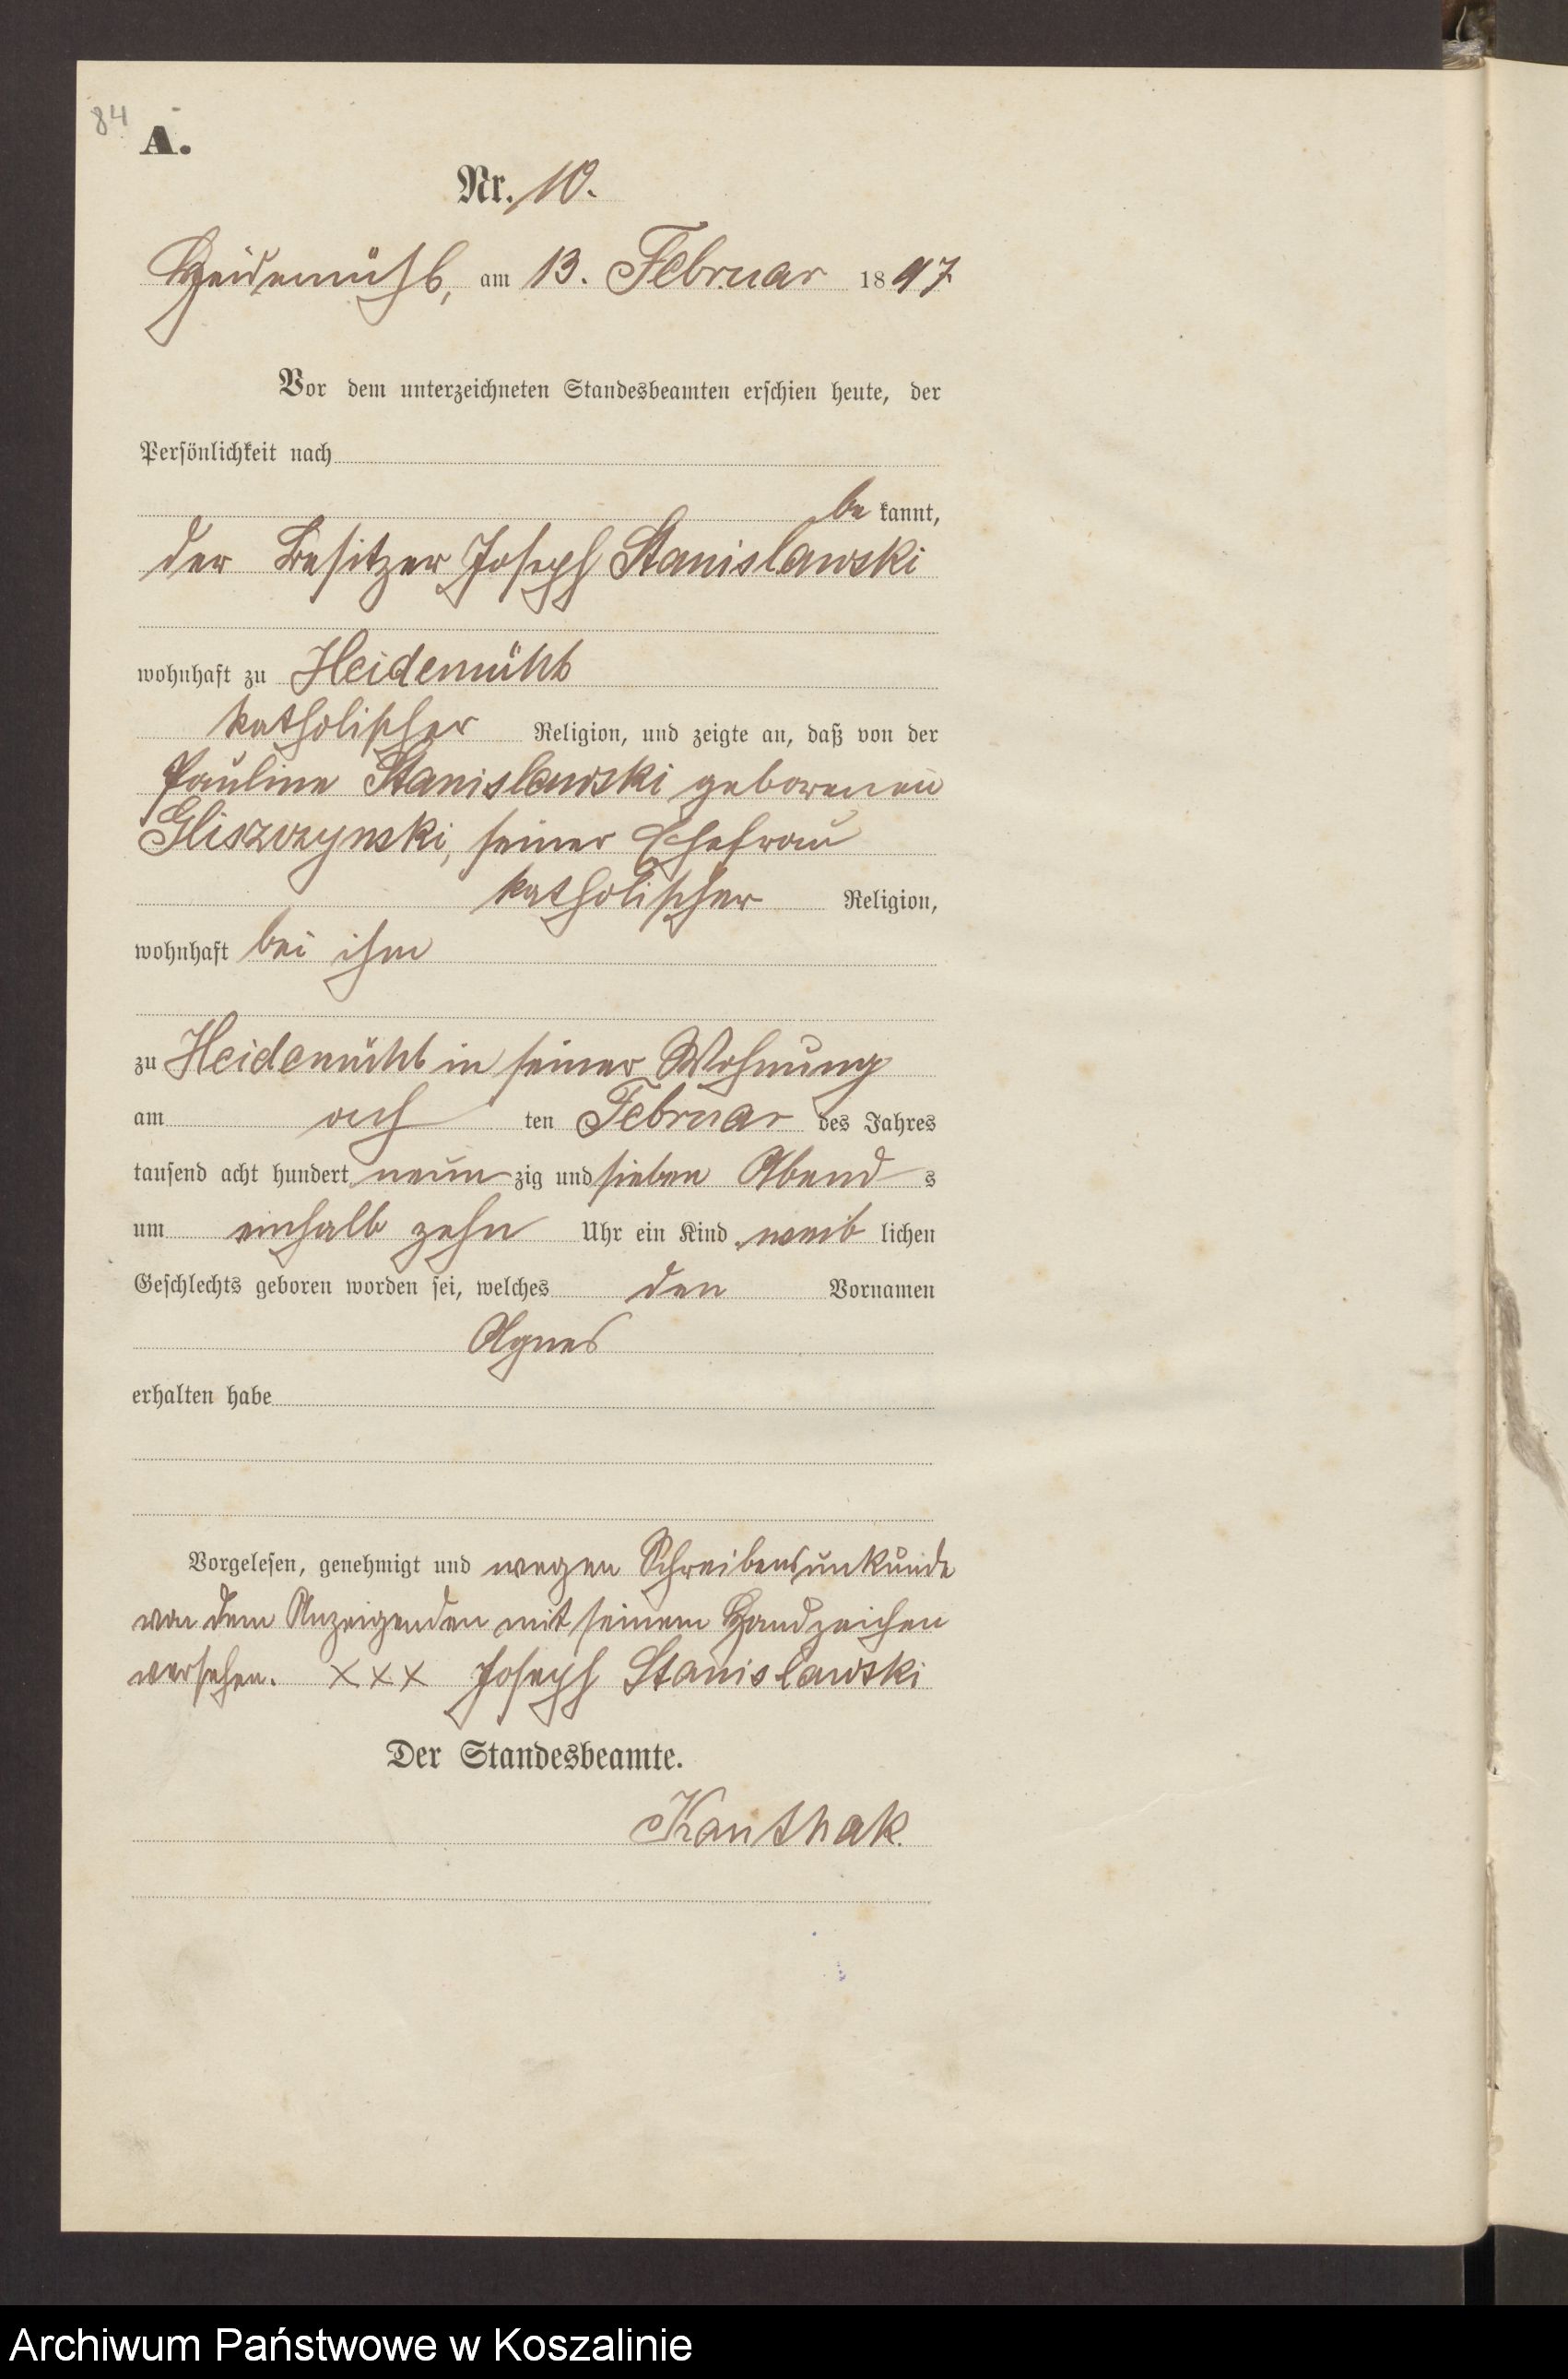 84
A.
Nr. 10.
Heidemühl, am 13. Februar 1897
Vor dem unterzeichneten Standesbeamten erschien heute, der
Persönlichkeit nach
be kannt,
der Besitzer Joseph Stanislawski
wohnhaft zu Heidemühl
katholischer Religion, und zeigte an, daß von der
Pauline Stanislawski geborenen
Gliszczynski, seiner Ehefrau
katholischer Religion,
wohnhaft bei ihm
zu Heidemühl in seiner Wohnung
am ach ten Februar des Jahres
tausend acht hundert neun zig und sieben Abend s
um einhalb zehn Uhr ein Kind weib lichen
Geschlechts geboren worden sei, welches den Vornamen
Agnes
erhalten habe
Vorgelesen, genehmigt und wegen Schreibensunkunde
von dem Anzeigenden mit seinem Handzeichen
versehen. XXX Joseph Stanislawski
Der Standesbeamte.
Kanthak.
Archiwum Państwowe w Koszalinie